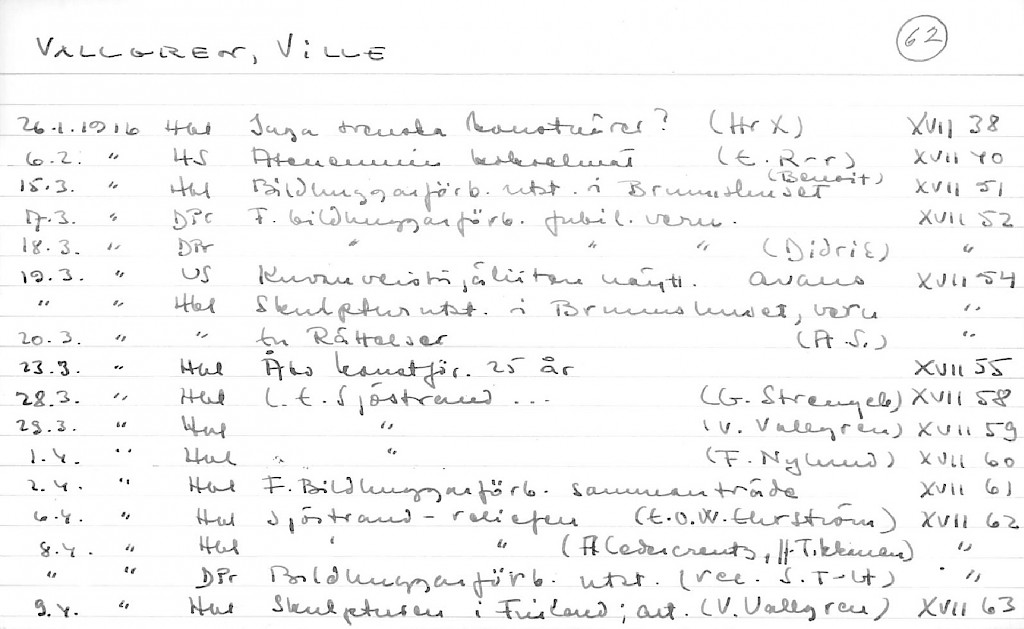 VALLGREN, VILLE 62
26.1.1916 Hbl Inga svenska konstnärer? (Hr X) XVII 38
6.2. " HS Ateneumin kokoelmat (E. R-r) XVII 40
(Benoit)
15.3. " Hbl Bildhuggarförb. utst. i Brunnshuset XVII 51
17.3. " DPr F. bildhuggarförb. jubil. vern. XVII 52
18.3. " DPr " " " (Didrik) "
19.3. " US Kuvanveistäjäliiton näytt. avaus XVII 54
" " Hbl Skulpturutst. i Brunnshuset, vern "
20.3. " " En Rättelse (A.S.) "
23.3. " Hbl Åbo konstför. 25 år XVII 55
28.3. " Hbl C.E. Sjöstrand ... (G. Strengell) XVII 58
29.3. " Hbl " (V. Vallgren) XVII 59
1.4. " Hbl " " (F. Nylund) XVII 60
2.4. " Hbl F. Bildhuggarförb. sammanträde XVII 61
6.4. " Hbl Sjöstrand-reliefen (E.O.W. Ehrström) XVII 62
8.4. " Hbl " " (A Cedercreutz, JJ Tikkanen) "
" " DPr Bildhuggarförb. utst. (rec. S. T-lt) "
9.4. " Hbl Skulpturen i Finland; art. (V. Vallgren) XVII 63